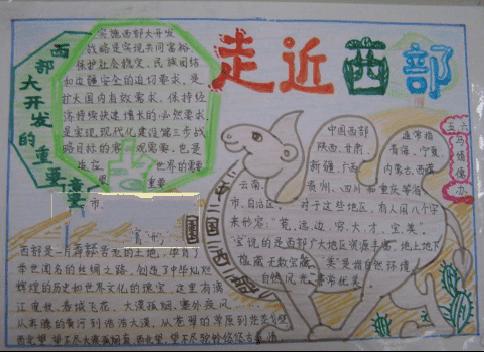 走近西部
西部大开发的重要
实施西部大开发
战略是实现共同富裕、
保护社会稳定、民族团结
和边疆安全的迫切要求,是
扩大国内有效需求,保持经
济持续快速增长的必然要求,
是实现现代化建设第三步战
略目标的客观需要,也是
世界的需要
重要
五六
马倩倩办
中国西部 通常指
陕西、甘肃、青海、宁夏、
新疆、广西、内蒙古、西藏
云南、贵州、四川和重庆等省
市、自治区。对于这些地区,有人用八个字
来形容:“荒,远,边,穷,大,才,宝,美”。
“宝”说的是西部广大地区资源丰富,地上地下
蕴藏无数宝藏。“美”是指自然环境,
自然风光
市、
西部是一片 的土地,孕育了
举世闻名的丝绸之路,创造了中华灿烂
辉煌的历史和世界文化的瑰宝,这里有漓
江夜秋,春城飞花,大漠孤烟,塞外夜风
从奔腾的黄河到浩浩大漠,从苍翠的草原到
西北望,望不尽大漠孤烟直,西北望,望不尽